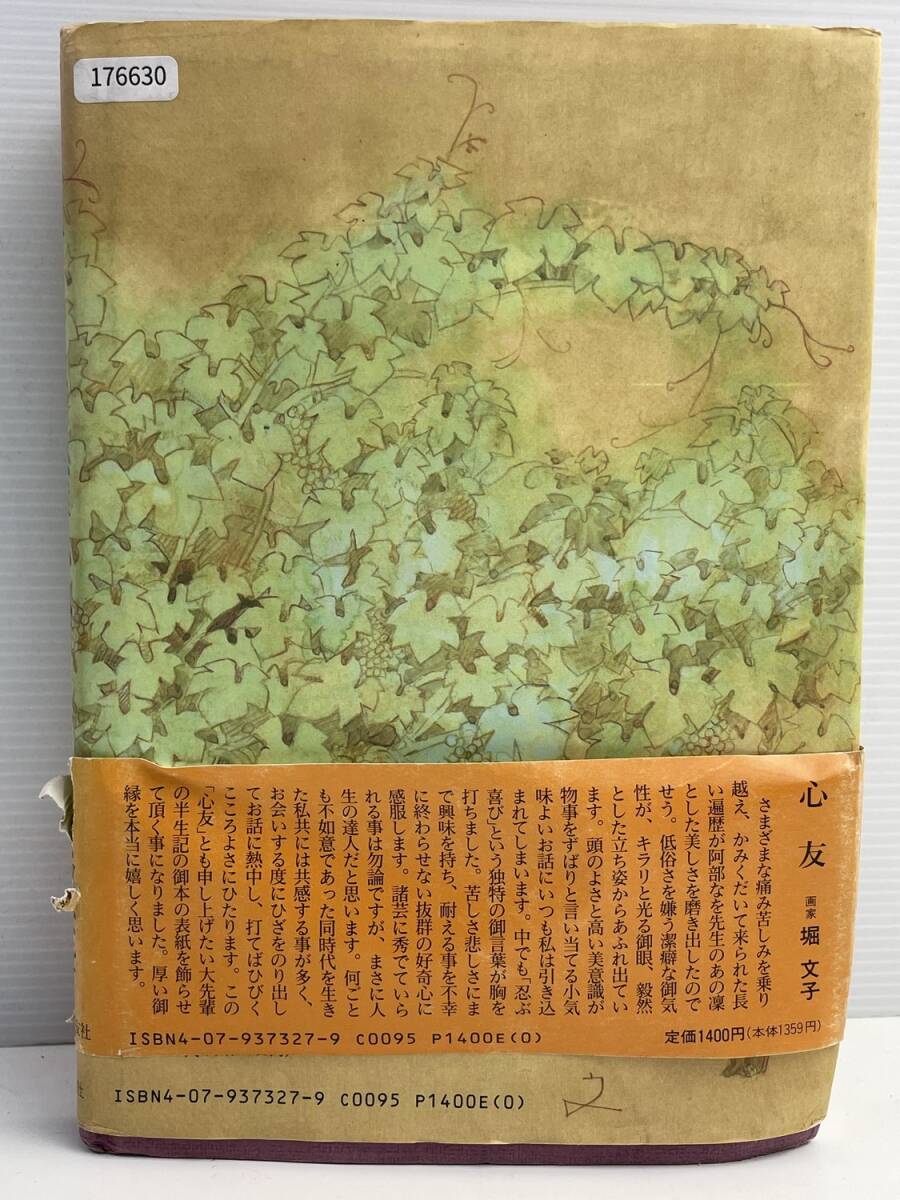 176630
心友
画家 堀 文子
さまざまな痛み苦しみを乗り
越え、かみくだいて来られた長
い遍歴が阿部なを先生のあの凜
とした美しさを磨き出したので
せう。低俗さを嫌う潔癖な御気
性が、キラリと光る御眼、毅然
とした立ち姿からあふれ出てい
ます。頭のよさと高い美意識が
物事をずばりと言い当てる小気
味よいお話にいつも私は引き込
まれてしまいます。中でも「忍ぶ
喜び」という独特の御言葉が胸を
打ちました。苦しさ悲しさにま
で興味を持ち、耐える事を不幸
に終わらせない抜群の好奇心に
感服します。諸芸に秀でていら
れる事は勿論ですが、まさに人
生の達人だと思います。何ごと
も不如意であった同時代を生き
た私共には共感する事が多く、
お会いする度にひざをのり出し
てお話に熱中し、打てばひびく
こころよさにひたります。この
「心友」とも申し上げたい大先輩
の半生記の御本の表紙を飾らせ
て頂く事になりました。厚い御
縁を本当に嬉しく思います。
ISBN4-07-937327-9 C0095 P1400E(0)
定価1400円(本体1359円)
ISBN4-07-937327-9 C0095 P1400E(0)
文
社
社